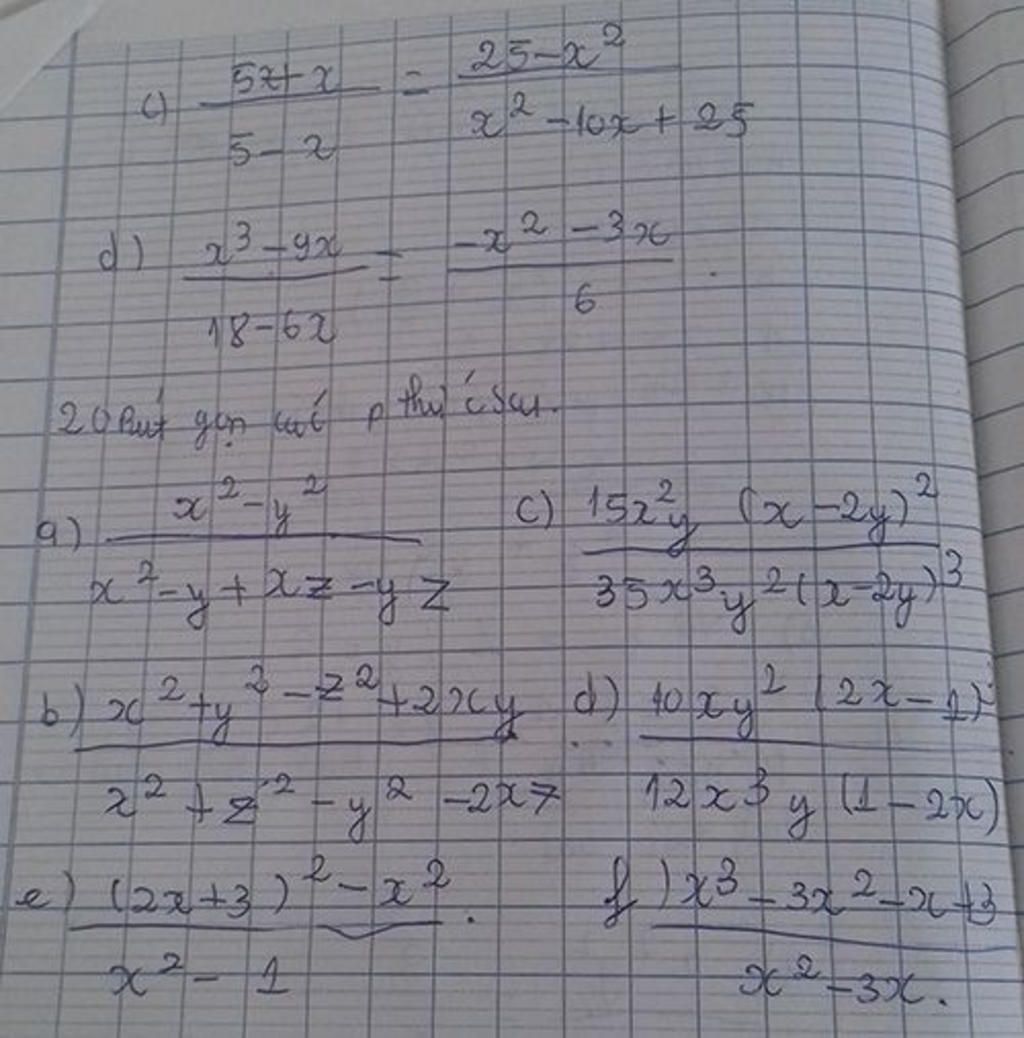 c) (5x+x)/(5-x) = (25-x²)/(x²-10x+25)
d) (x³-9x)/(18-6x) = (-x²-3x)/6.
2) Rút gọn các p thức sau.
a) (x²-y²)/(x²-y+xz-yz) c) (15x²y (x-2y)²)/(35x³y²(x-2y)³)
b) (x²+y²-z²+2xy)/(x²+z²-y²-2xz) d) (10xy² (2x-1))/(12x³y (1-2x))
e) ((2x+3)²-x²)/(x²-1). f) (x³-3x²-x+3)/(x²-3x).